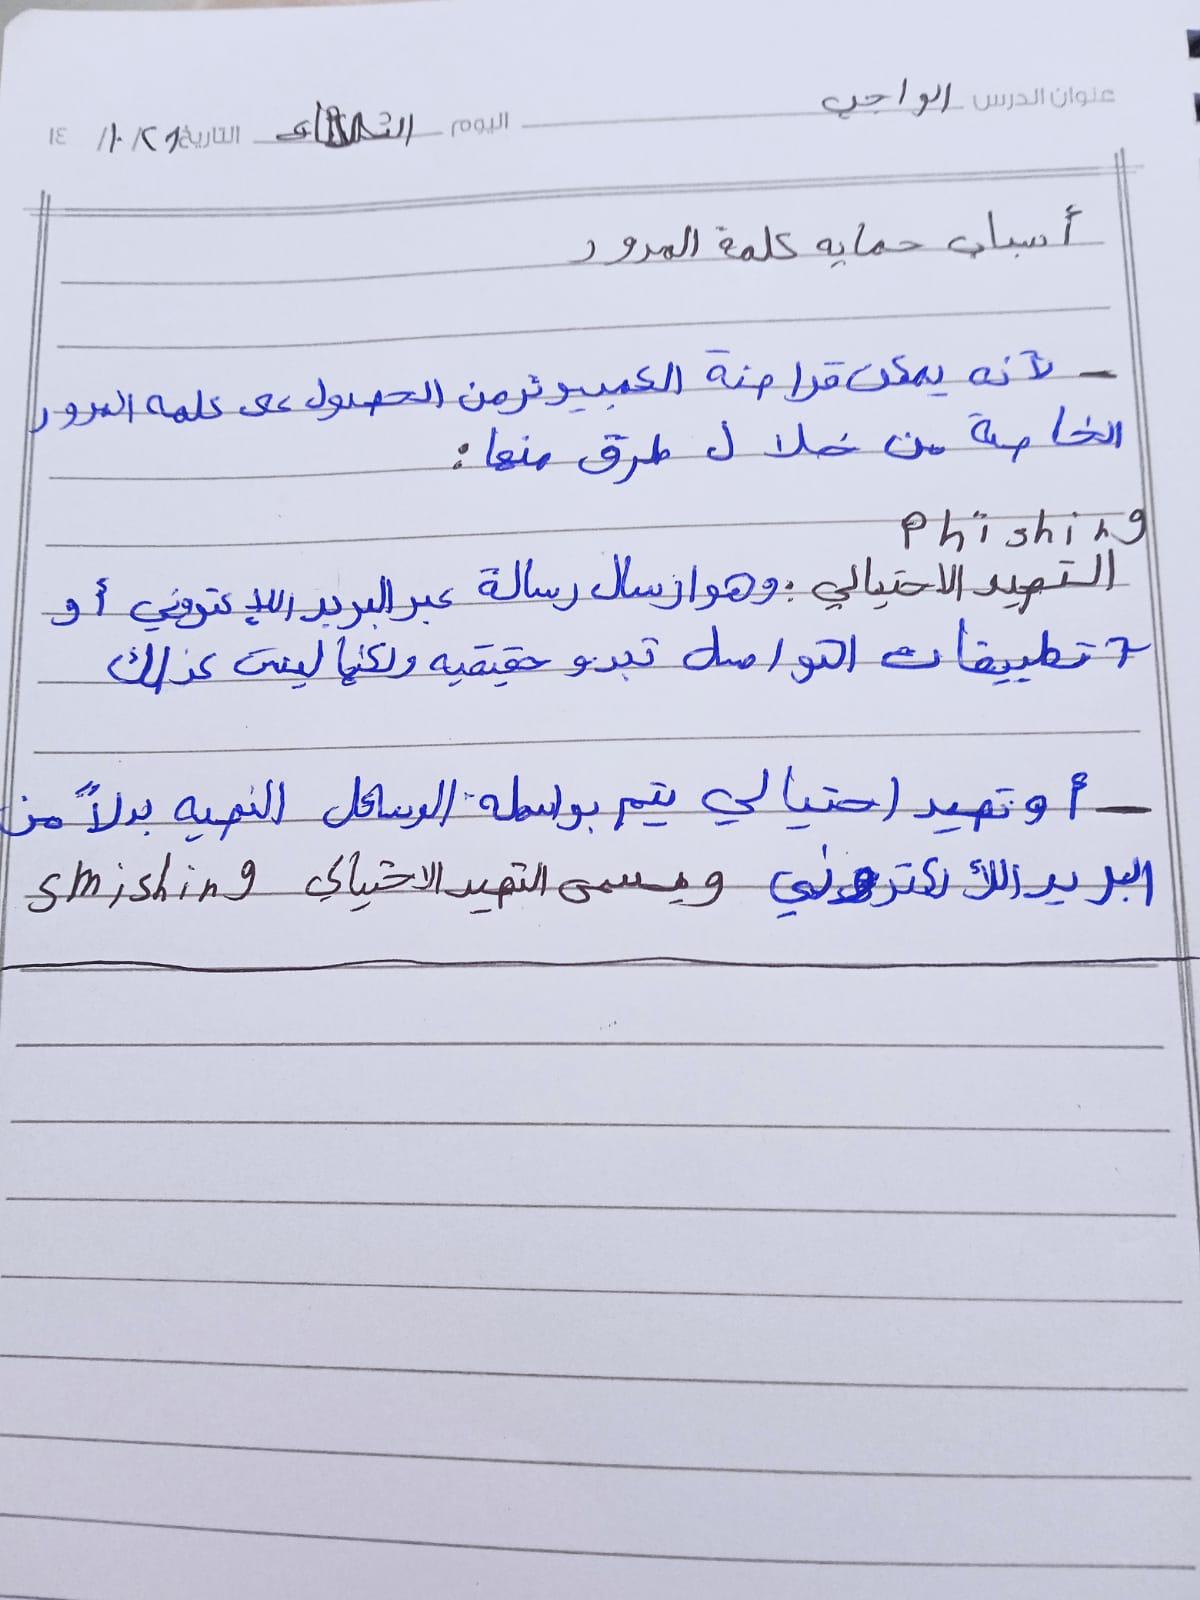 عنوان الدرس الواجب اليوم الثلاثاء التاريخ ١٠/٢١/ ١٤
أسباب حمايه كلمة المرور
- لأنه يمكن قراصنة الكمبيوتر من الحصول على كلمه المرور
الخاصة من خلال طرق منها:
Phishing
التصيد الاحتيالي: وهو ارسال رسالة عبر البريد الإلكتروني أو
تطبيقات التواصل تبدو حقيقيه ولكنها ليست كذلك
- أو تصيد احتيالي يتم بواسطه الوسائل النصيه بدلاً من
البريد الالكتروني ويسمى التصيد الاحتيالي smishing